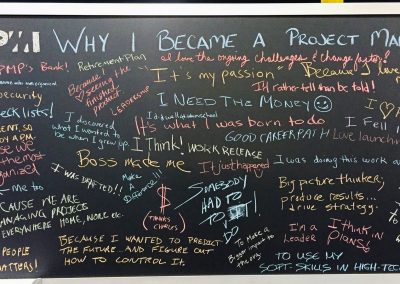 PMI WHY I BECAME A PROJECT MA
PMP's Bank!
Retirement Plan
I love the ongoing challenges & change factor!
Because I
seeing the
finished
product
LEADERSHIP
"It's my passion"
Because I love
I'd rather tell than be told!
security
checklists!
I discovered
what I wanted to
be when I grew up
I NEED THE MONEY
It's what I was born to do
GOOD CAREER PATH
Love launch
I Fell I
I Think!
WORK RELEASE
Boss made me
It just happened
I was doing this work a
the most
organized!
Me too
I WAS DRAFTED!!
Make
A
Difference!!!
$
(THANKS
CHARLES)
SOMEBODY
HAD TO
TO
DO
Big picture thinker;
produce results...
drive strategy.
CAUSE WE ARE
MANAGING PROJECTS
EVERYWHERE HOME, WORK etc.
I'm a
Leader
I think in
Plans!
PEOPLE
MATTERS!
BECAUSE I WANTED TO PREDICT
THE FUTURE...AND FIGURE OUT
HOW TO CONTROL IT.
To Make a
Bigger impact to
the org.
TO USE MY
SOFT-SKILLS IN HIGH-TEC